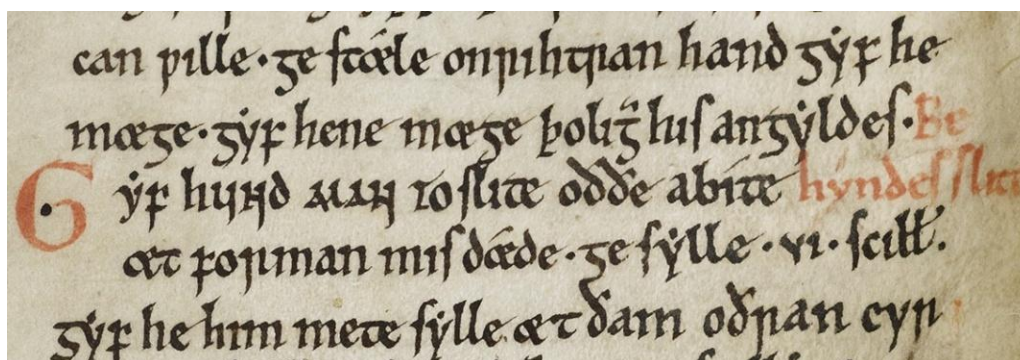 can ƿille · ge stǽle onrihtran hand gẏf he
mæge · gẏf hene mæge þolig̃ his angẏldes · Be
Gẏf hund man toslite oððe abite hyndes slite
æt forman misdǽde · ge sẏlle · vi · scill̃.
gẏf he him mete sẏlle æt ðam oðran cyr